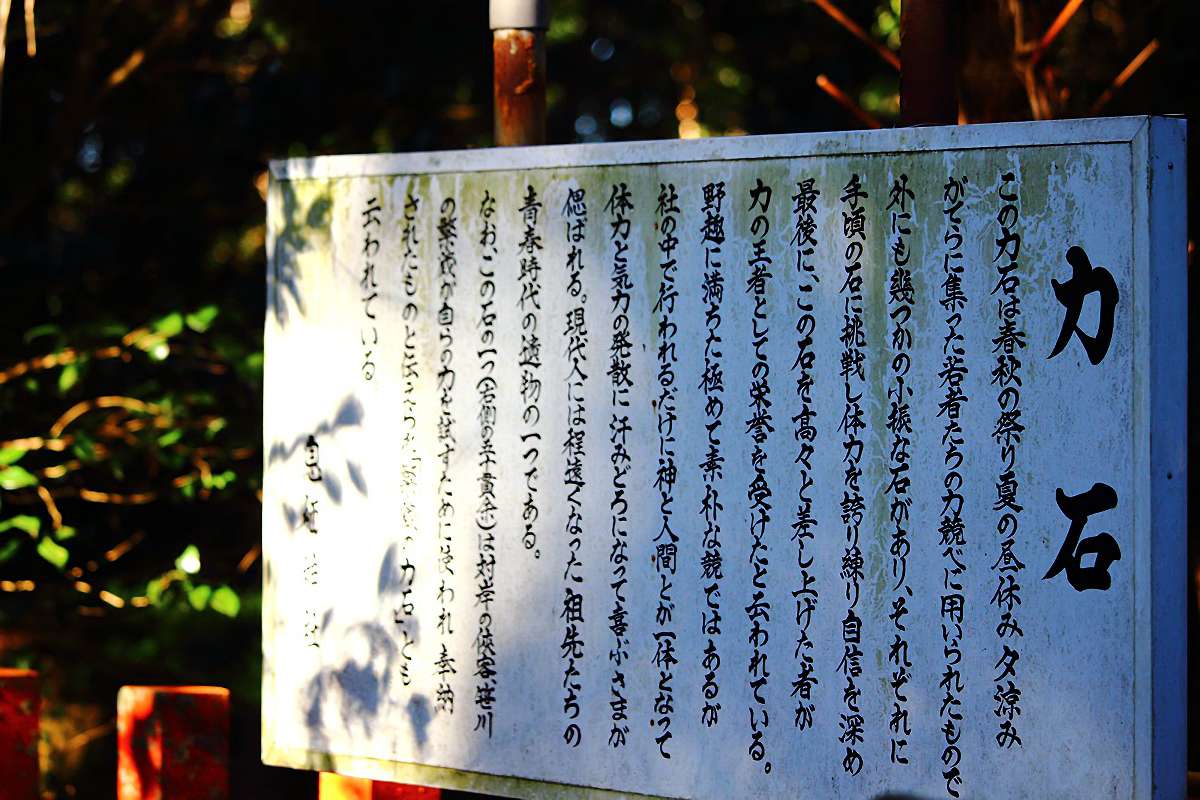 力石
この力石は春秋の祭り夏の昼休み夕涼み
がてらに集った若者たちの力競べに用いられたもので
外にも幾つかの小振な石があり、それぞれに
手頃の石に挑戦し体力を誇り練り自信を深め
最後に、この石を高々と差し上げた者が
力の王者としての栄誉を受けたと云われている。
野趣に満ちた極めて素朴な競ではあるが
社の中で行われるだけに神と人間とが一体となって
体力と気力の発散に汗みどろになって喜ぶさまが
偲ばれる。現代人には程遠くなった祖先たちの
青春時代の遺物の一つである。
なお、この石の一つ(右側の五十貫余)は村岸の侠客、笹川
の繁蔵が自らの力を試すために使われ奉納
されたものと伝えられ「繁蔵の力石」とも
云われている
神社